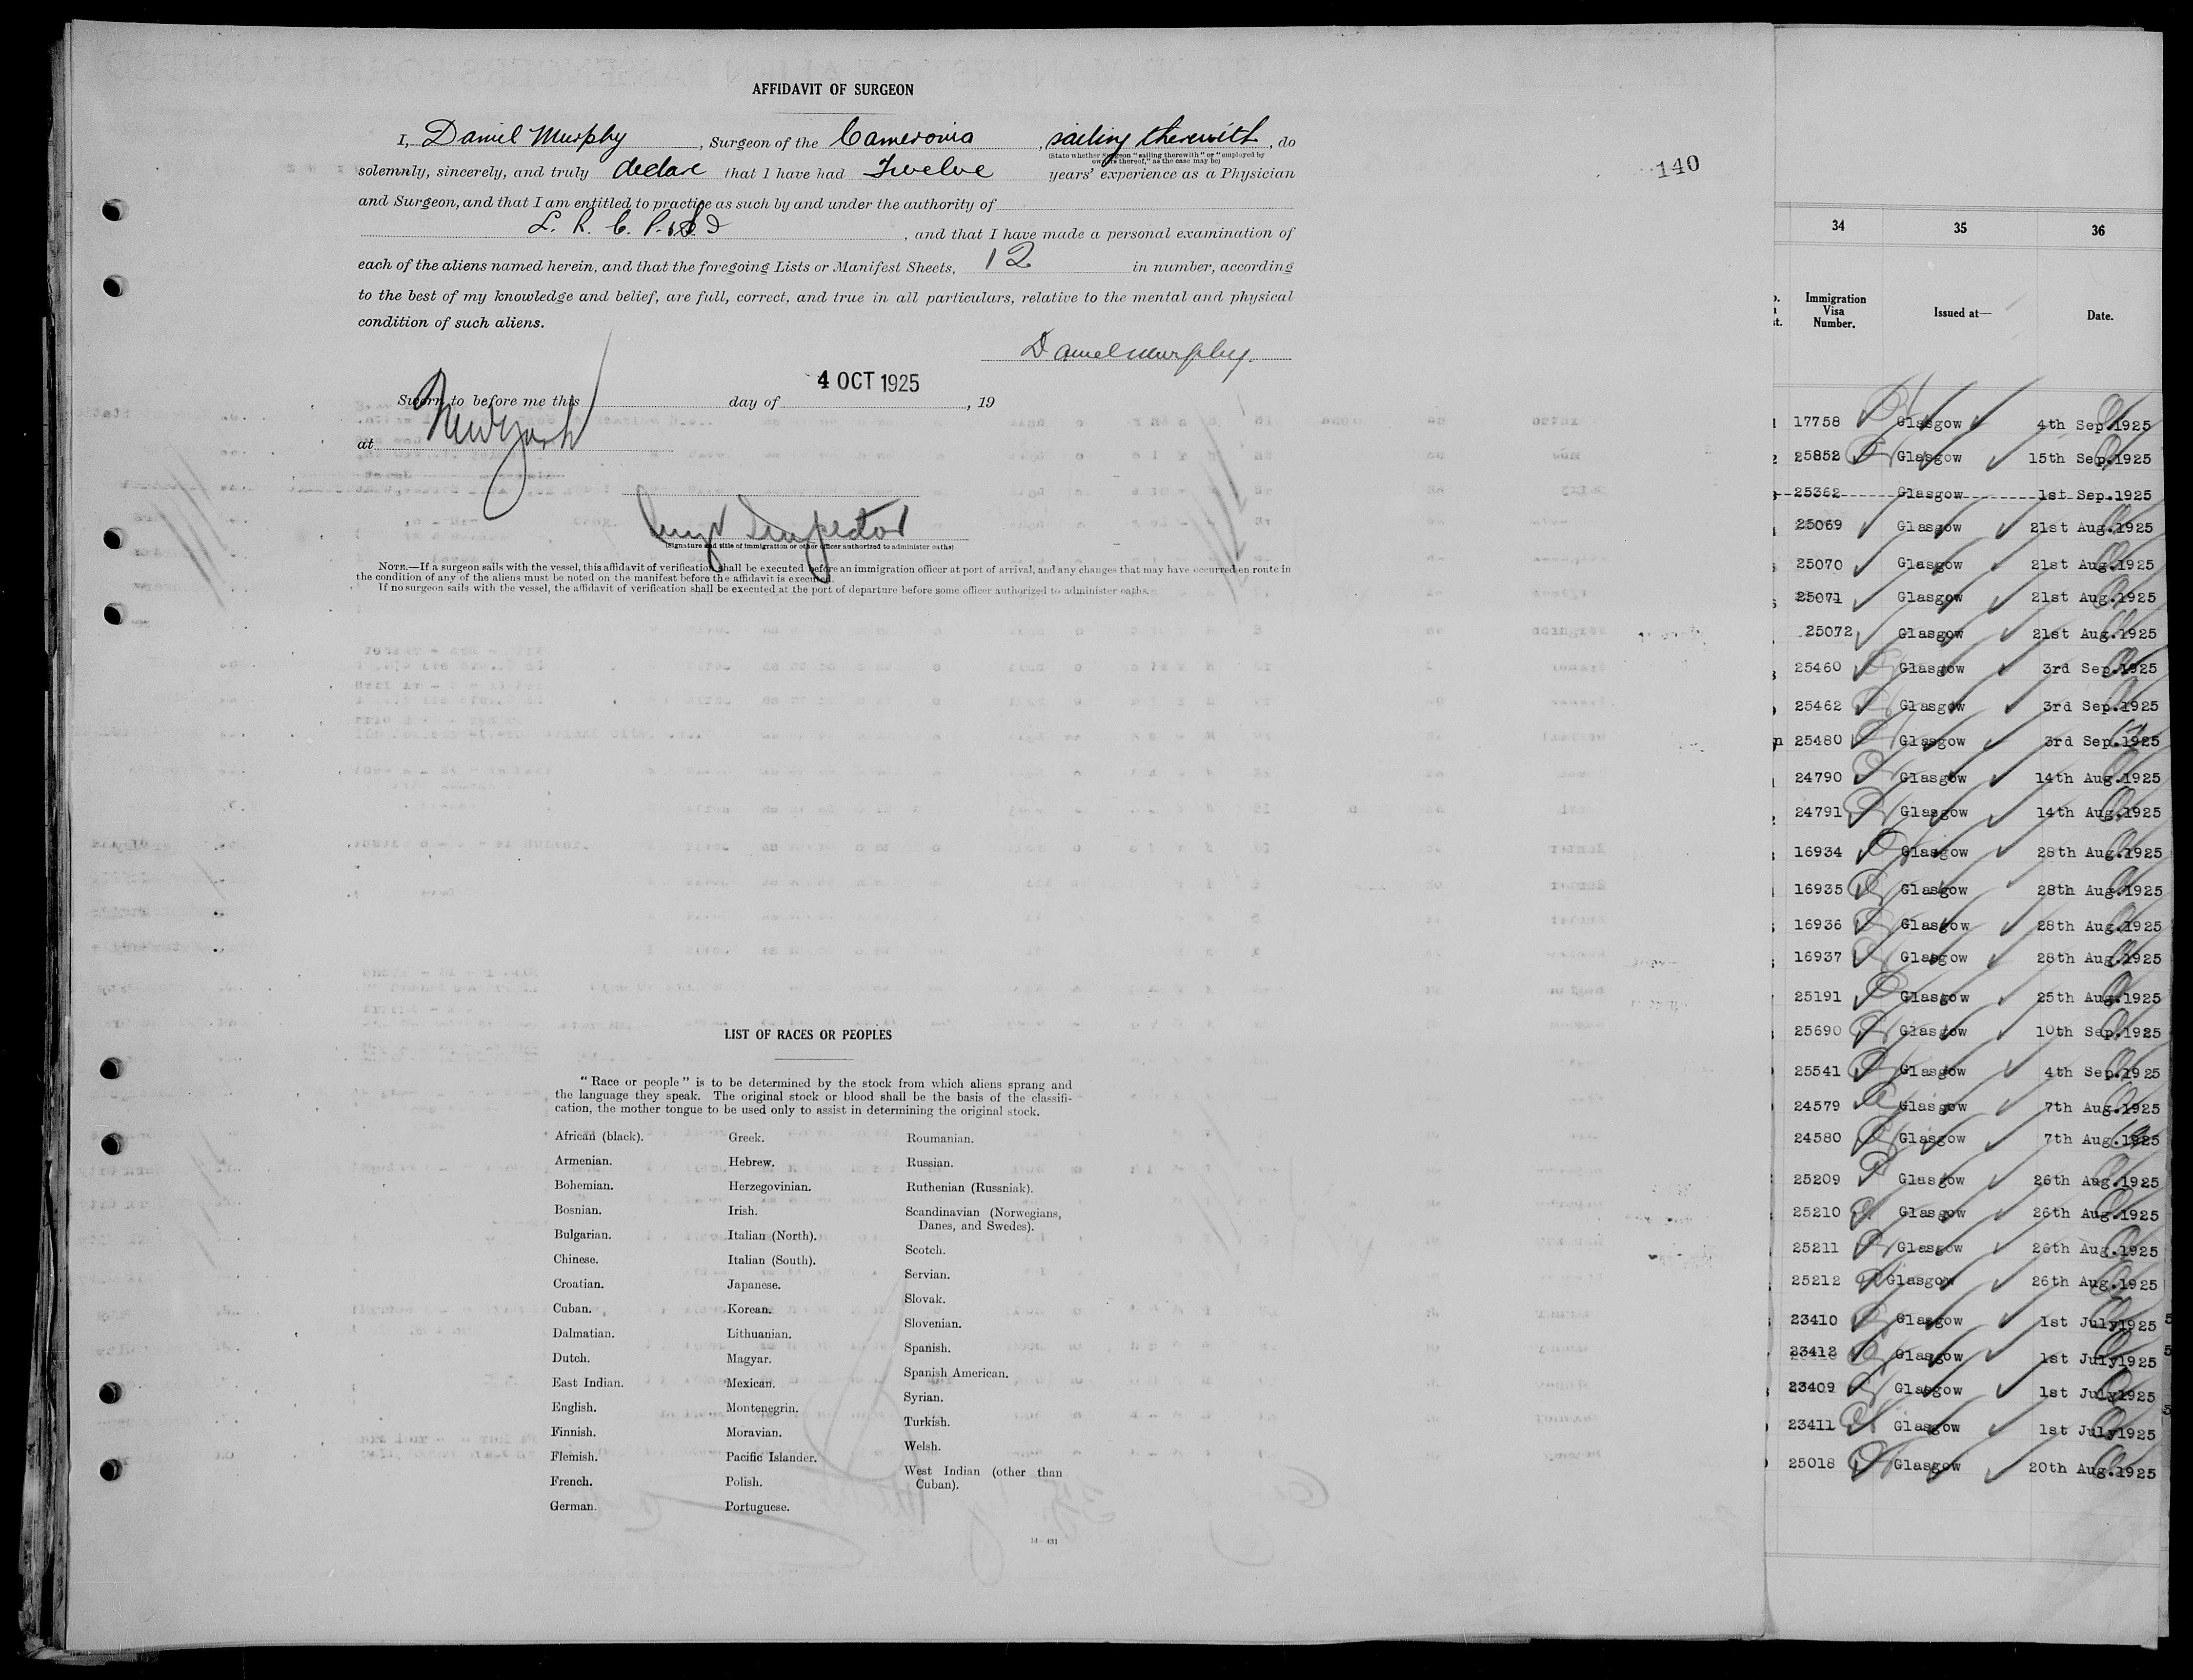 AFFIDAVIT OF SURGEON
I, Daniel Murphy, Surgeon of the Cameronia, sailing therewith, do
(State whether Surgeon "sailing therewith" or "employed by
owners thereof," as the case may be)
solemnly, sincerely, and truly declare that I have had Twelve years' experience as a Physician
and Surgeon, and that I am entitled to practice as such by and under the authority of
L. R. C. P. , and that I have made a personal examination of
each of the aliens named herein, and that the foregoing Lists or Manifest Sheets, 12 in number, according
to the best of my knowledge and belief, are full, correct, and true in all particulars, relative to the mental and physical
condition of such aliens.
Daniel Murphy.
4 OCT 1925
Sworn to before me this day of , 19
at New York
Inspector
(Signature and title of immigration or other officer authorized to administer oaths)
NOTE.—If a surgeon sails with the vessel, this affidavit of verification shall be executed before an immigration officer at port of arrival, and any changes that may have occurred en route in
the condition of any of the aliens must be noted on the manifest before the affidavit is executed.
If no surgeon sails with the vessel, the affidavit of verification shall be executed at the port of departure before some officer authorized to administer oaths.
LIST OF RACES OR PEOPLES
"Race or people" is to be determined by the stock from which aliens sprang and
the language they speak. The original stock or blood shall be the basis of the classifi-
cation, the mother tongue to be used only to assist in determining the original stock.
African (black).
Armenian.
Bohemian.
Bosnian.
Bulgarian.
Chinese.
Croatian.
Cuban.
Dalmatian.
Dutch.
East Indian.
English.
Finnish.
Flemish.
French.
German.
Greek.
Hebrew.
Herzegovinian.
Irish.
Italian (North).
Italian (South).
Japanese.
Korean.
Lithuanian.
Magyar.
Mexican.
Montenegrin.
Moravian.
Pacific Islander.
Polish.
Portuguese.
Roumanian.
Russian.
Ruthenian (Russniak).
Scandinavian (Norwegians,
Danes, and Swedes).
Scotch.
Servian.
Slovak.
Slovenian.
Spanish.
Spanish American.
Syrian.
Turkish.
Welsh.
West Indian (other than
Cuban).
14—431
140
34 35 36
Immigration
Visa
Number.
Issued at—
Date.
17758 Glasgow 4th Sep.1925
25852 Glasgow 15th Sep.1925
25362 Glasgow 1st Sep.1925
25069 Glasgow 21st Aug.1925
25070 Glasgow 21st Aug.1925
25071 Glasgow 21st Aug.1925
25072 Glasgow 21st Aug.1925
25460 Glasgow 3rd Sep.1925
25462 Glasgow 3rd Sep.1925
25480 Glasgow 3rd Sep.1925
24790 Glasgow 14th Aug.1925
24791 Glasgow 14th Aug.1925
16934 Glasgow 28th Aug.1925
16935 Glasgow 28th Aug.1925
16936 Glasgow 28th Aug.1925
16937 Glasgow 28th Aug.1925
25191 Glasgow 25th Aug.1925
25690 Glasgow 10th Sep.1925
25541 Glasgow 4th Sep.1925
24579 Glasgow 7th Aug.1925
24580 Glasgow 7th Aug.1925
25209 Glasgow 26th Aug.1925
25210 Glasgow 26th Aug.1925
25211 Glasgow 26th Aug.1925
25212 Glasgow 26th Aug.1925
23410 Glasgow 1st July1925
23412 Glasgow 1st July1925
23409 Glasgow 1st July1925
23411 Glasgow 1st July1925
25018 Glasgow 20th Aug.1925